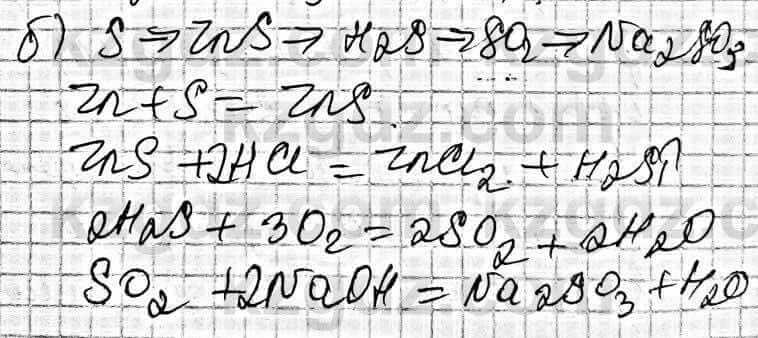 б) S → ZnS → H2S → SO2 → Na2SO3
Zn + S = ZnS.
ZnS + 2HCl = ZnCl2. + H2S↑
2H2S + 3O2 = 2SO2 + 2H2O
SO2 + 2NaOH = Na2SO3 + H2O